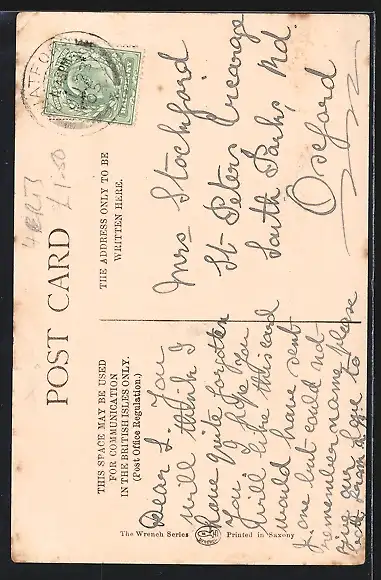 POST CARD
THIS SPACE MAY BE USED
FOR COMMUNICATION
IN THE BRITISH ISLES ONLY.
(Post Office Regulation.)
THE ADDRESS ONLY TO BE
WRITTEN HERE.
£1.50
Dear L. You
will think I
have quite forgotten
You I hope You
will like this card
would have sent
one but could not
remember name please
give our love to
both from
Mrs Stockford
St Peters Vicarage
South Parks Rd.
Oxford
The Wrench Series
Printed in Saxony